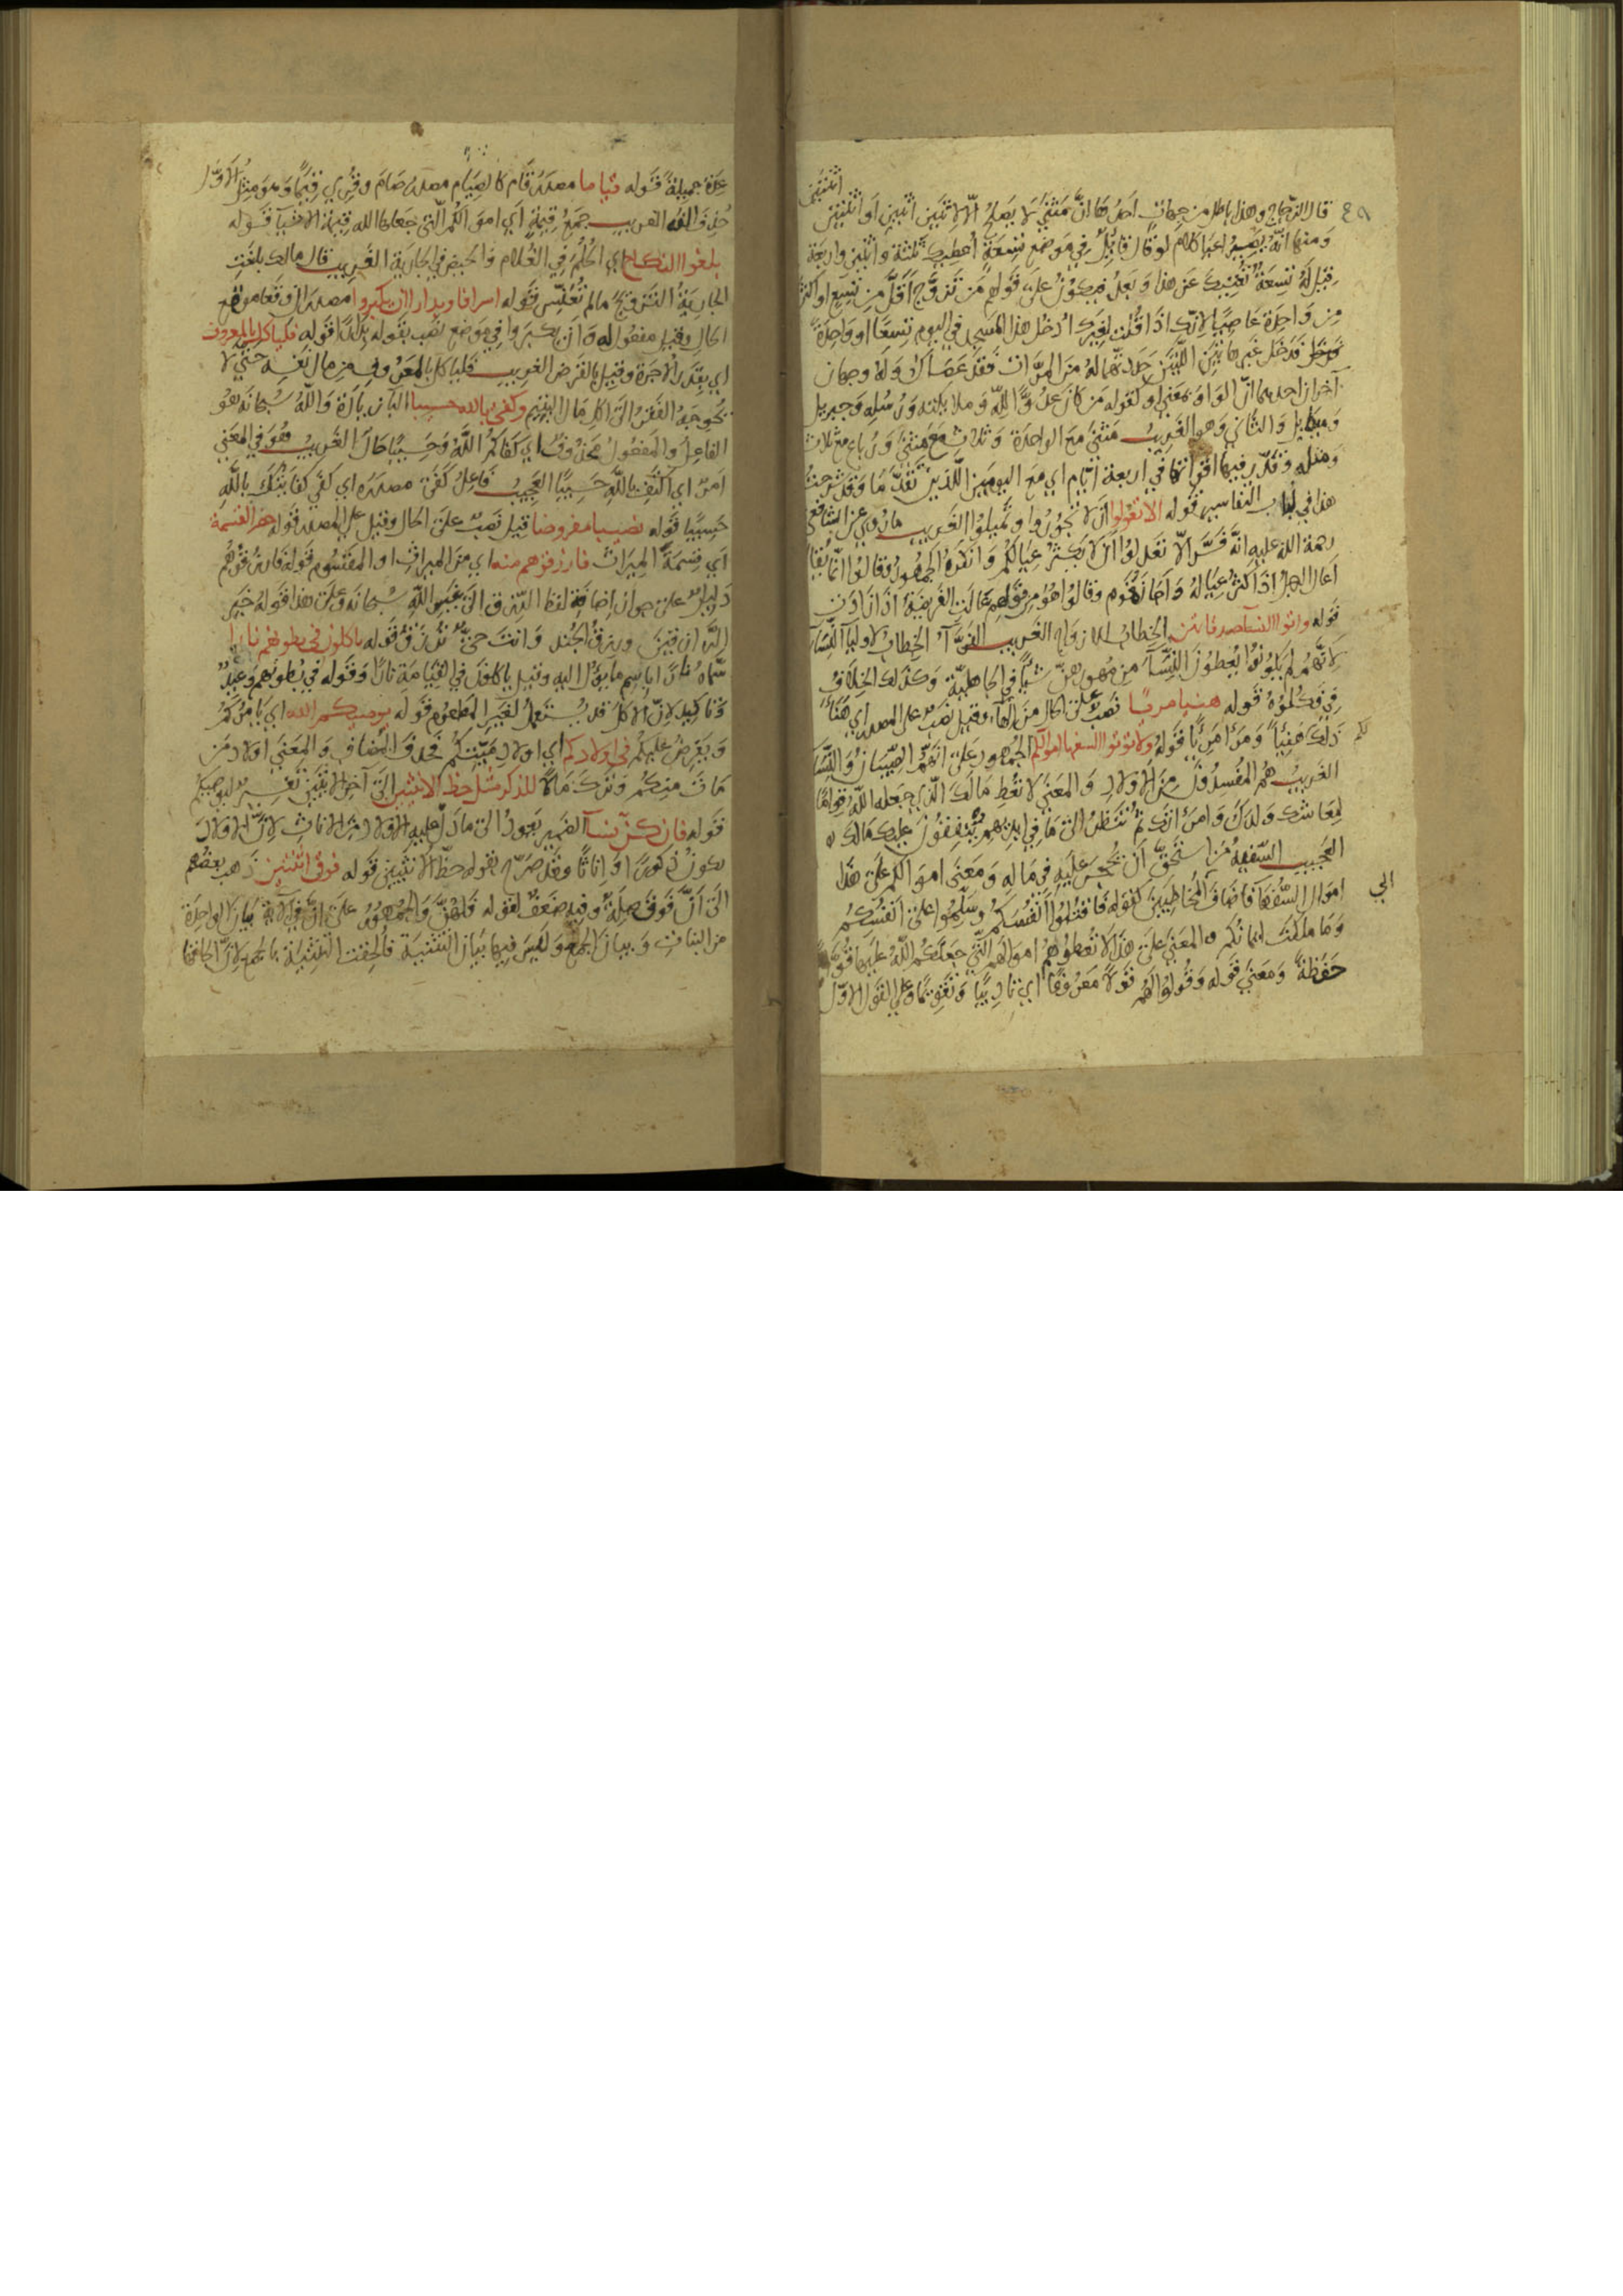 قال الزجاج وهذا باطل من جهات احدها ان مثنى لا يصلح الا لاثنين اثنين او اثنتين اثنتين
ومنها انه يصير اعيا كلام لو قال قائل في موضع تسعة اعطيك ثلثة واثنين واربعة
قيل له تسعة تغنيك عن هذا وبعد فيكون على قولهم من تزوج اقل من تسع او اكثر
من واحدة عاصيا لانك اذا قلت لغيرك ادخل هذا المسجد في اليوم تسعا او واحدة
فقط فدخل غيرهاتين اللتين حددتهما له من المرات فقد عصاك وله وجهان
آخران احدهما ان الواو بمعنى او لقوله من كان عدوا لله وملائكته ورسله وجبريل
وميكايل والثاني وهو الغريب مثنى مع الواحدة وثلاث مع مثنى ورباع مع ثلاث
ومثله وقدر فيها اقواتها في اربعة ايام اي مع اليومين اللذين تقدما وقد شرحت
هذا في لباب التفاسير قوله الا تعولوا ان لا تجوروا وتميلوا الغريب ما روي عن الشافعي
رحمة الله عليه انه فسر الا تعدلوا ان لا يكثر عيالكم وانكره الجمهور وقالوا انما يقال
اعال الرجل اذا كثر عياله واجازه قوم وقالوا هو من قولهم عالت الفريضة اذا زادت
قوله واتوا النسا صدقاتهن الخطاب للازواج الغريب الفرا الخطاب لاوليا النسا
لانهم لم يكونوا يعطون النسا من مهورهن شيا في الجاهلية وكذلك الخلاف
في فكلوه قوله هنيا مريا نصب على الحال من الهاء وقيل نصب على المصدر اي هنأ
لكم ذلك هنيئا ومرأ مريئا قوله ولا تؤتوا السفها اموالكم الجمهور على انهم الصبيان والنسا
الغريب هم المفسدون من الاولاد والمعنى لا تعط مالك الذي جعله الله قواما
لمعاشك ولدك وامراتك ثم تنظر الى ما في ايديهم ينفقون عليك مالك
العجيب السفيه من استحق ان يحجر عليه في ماله ومعنى اموالكم على هذا
اموال السفها فاضاف الى المخاطبين كقوله فاقتلوا انفسكم وسلموا على انفسكم
وما ملكت ايمانكم والمعنى على هذا لا تعطوهم اموالهم التي جعلكم الله عليها قوما
حفظة ومعنى قوله وقولوا لهم قولا معروفا اي تاديبا وتقويما وعلى القول الاول
عدة جميلة قوله قياما مصدر قام كالصيام مصدر صام وقري قيما وهو مثل الاول
حذف الفه الغريب جمع قيمة اي اموالكم التي جعلها الله قيمة الاشيا قوله
بلغوا النكاح اي الحلم في الغلام والحيض في الجارية الغريب قال مالك بلغت
الجارية التزوج ما لم تعنس قوله اسرافا وبدارا ان يكبروا مصدران وقعا موقع
الحال وقيل مفعول له وان يكبروا في موضع نصب بقوله بدارا قوله فلياكل بالمعروف
اي بقدر الاجرة وقيل بالقرض الغريب فلياكل بالمعروف من مال نفسه حتى لا
تحوجه الفقر الى اكل مال اليتيم وكفى بالله حسيبا الباء زيادة والله سبحانه هو
الفاعل والمفعول محذوف اي كفاكم الله وحسيبا حال الغريب هو في المعنى
امر اي اكتف بالله حسيبا العجيب فاعل كفى مصدره اي كفى كفايتك بالله
حسيبا قوله نصيبا مفروضا قيل نصب على الحال وقيل على المصدر قوله حضر القسمة
اي قسمة الميراث فارزقوهم منه اي من الميراث او المقسوم قوله فارزقوهم
دليل على جواز اضافة لفظ الرزق الى غير الله سبحانه وعلى هذا قوله خير
الرازقين ورزق الجند وانت حي ترزق قوله ياكلون في بطونهم نارا
سماه نارا باسم ما يؤل اليه وقيل ياكل في القيامة نارا وقوله في بطونهم وعيد
وتاكيد لان الاكل قد يستعمل لغير المطعوم قوله يوصيكم الله اي يامركم
ويفرض عليكم في اولادكم اي اولاد ميتكم فحذف المضاف والمعنى اولاد من
مات منكم وترك مالا للذكر مثل حظ الانثيين الى آخر الاثنين تفسير ليوصيكم
قوله فان كن نسا الضمير يعود الى ما دل عليه الاولاد من الاناث لان الاولاد
يكون ذكورا او اناثا وقد صرح بقوله حظ الانثيين قوله فوق اثنتين ذهب بعضهم
الى ان فوق صلة وفيه ضعف لقوله فلهن والجمهور على ان في الآية بيان الواحدة
من البنات وبيان الجمع وليس فيها بيان التثنية فالحقت التثنية بالجمع لان الحاقها
الى